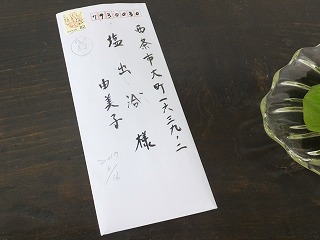 7930030
西条市大町一六三九-二
塩出
由美子
様
2017
6/16